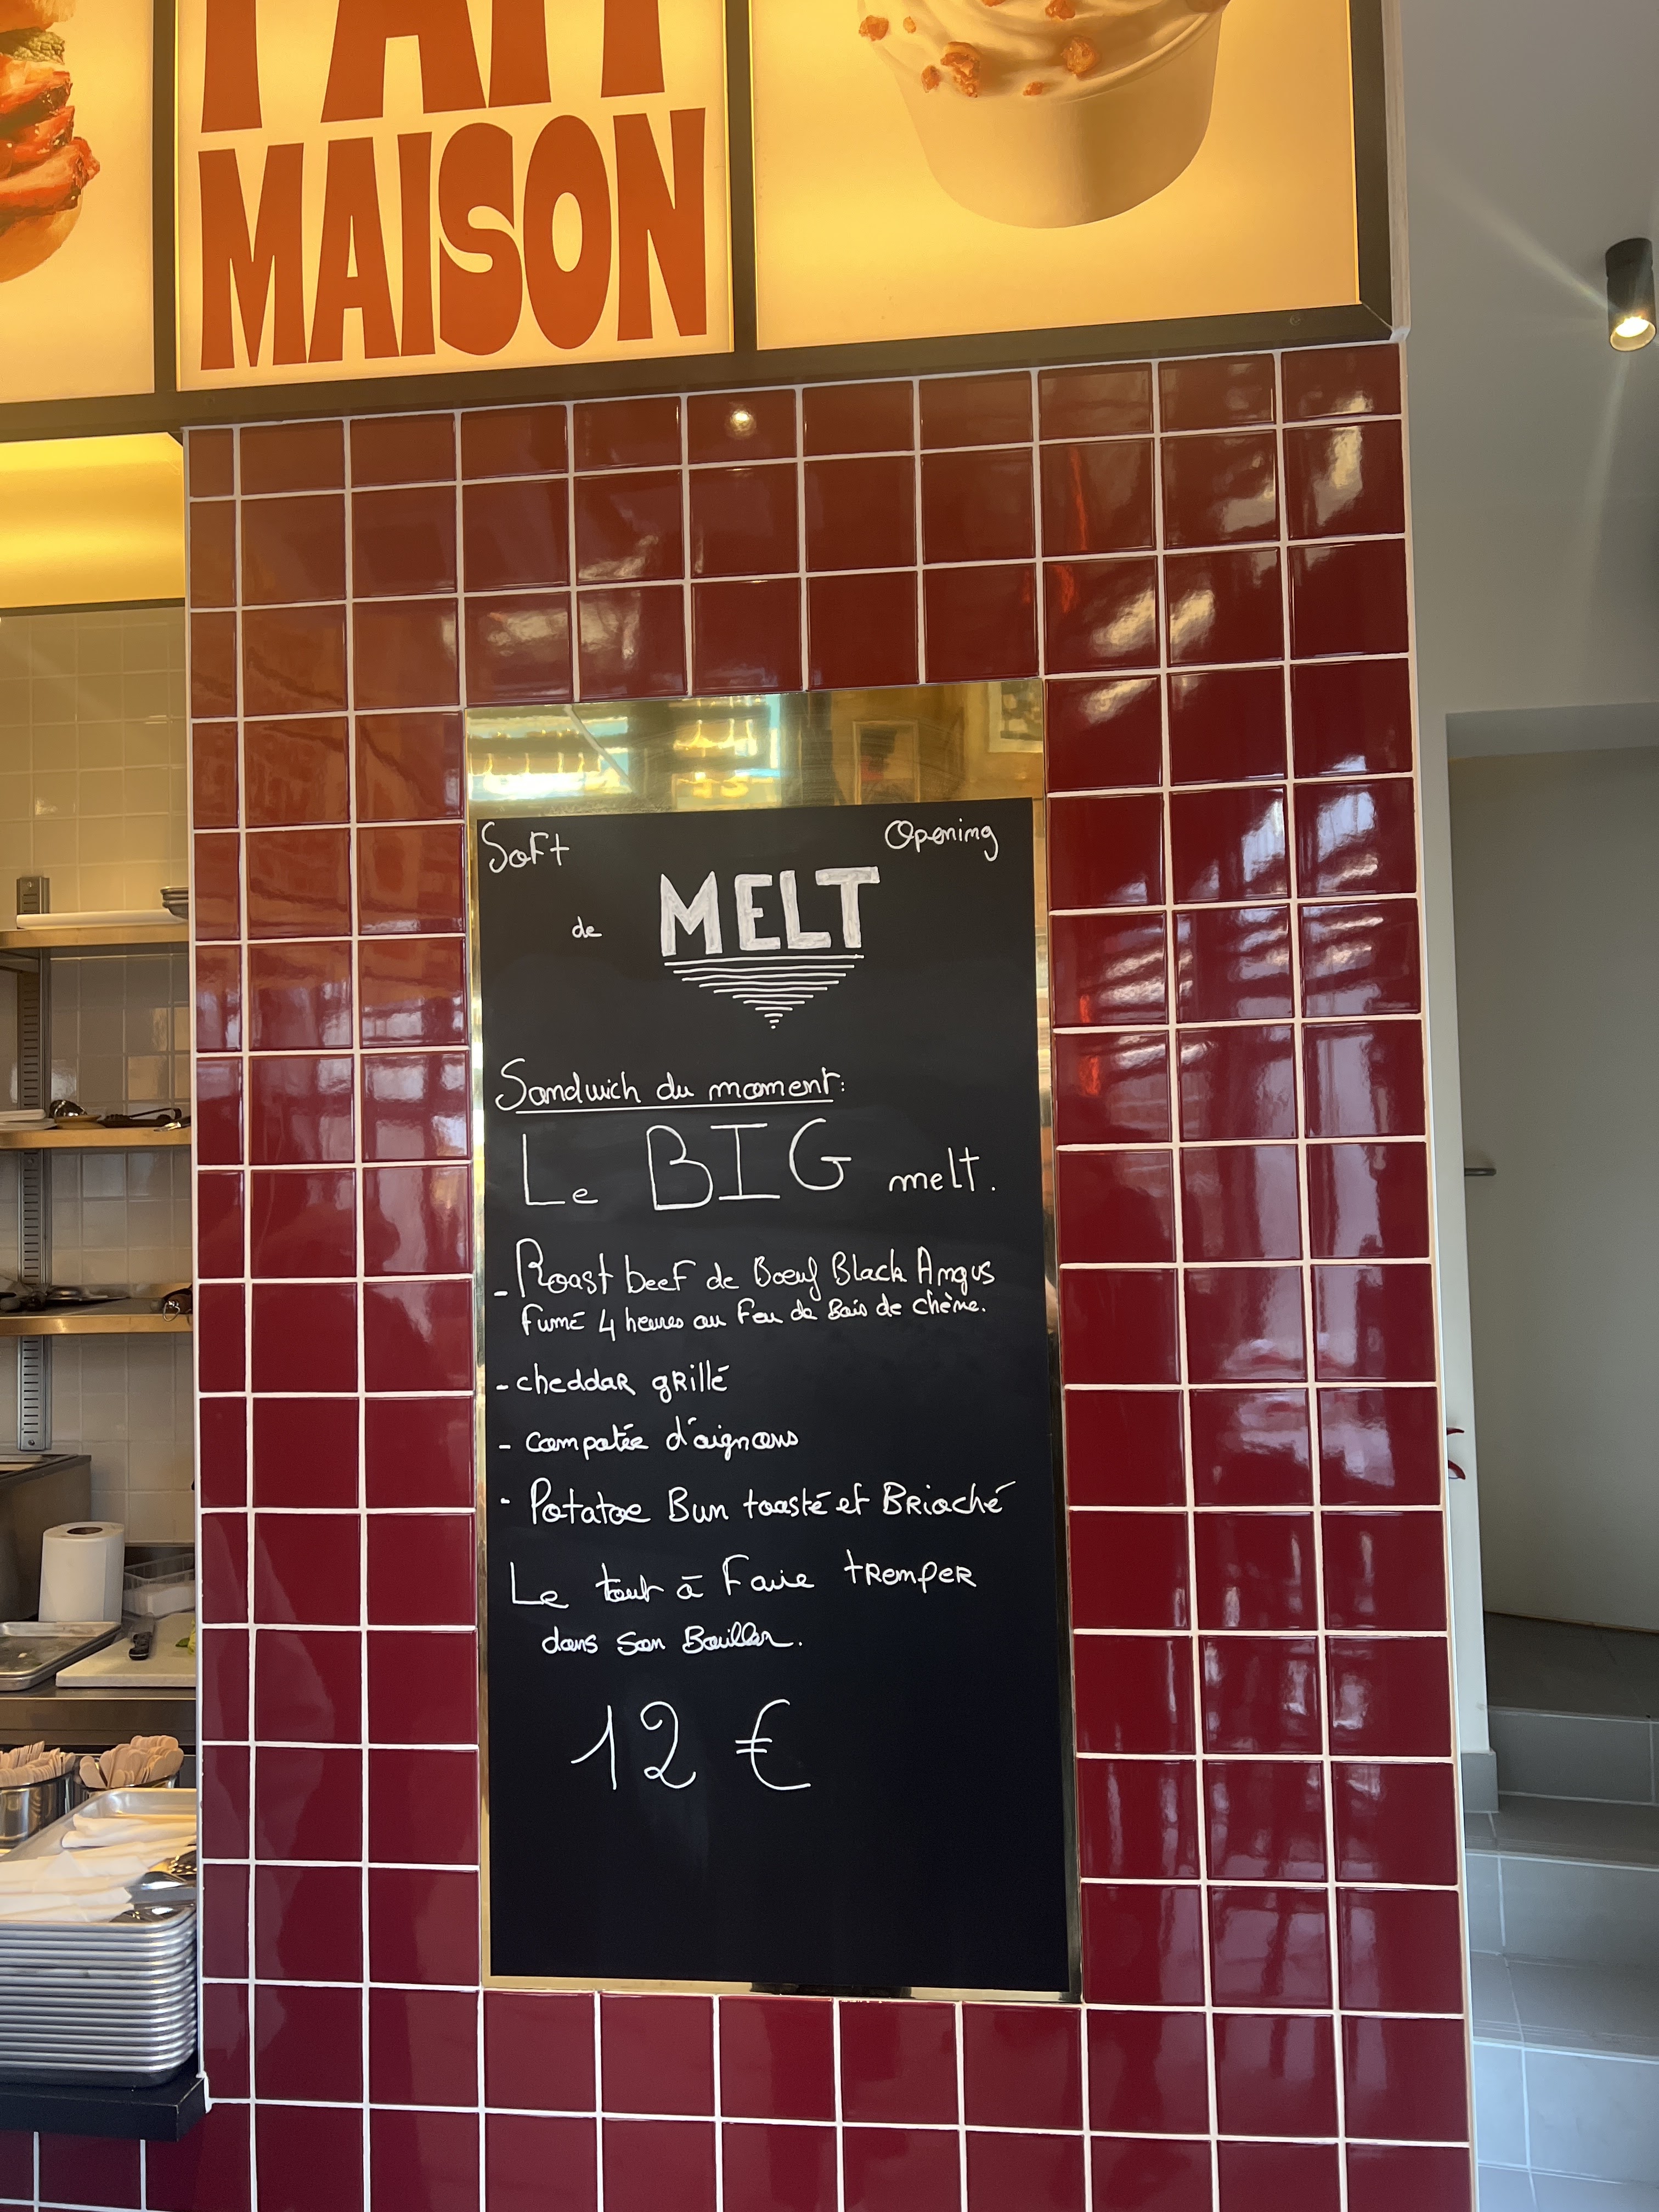 FAIT
MAISON
Soft Opening
de MELT
Sandwich du moment:
Le BIG melt.
- Roast beef de Boeuf Black Angus
fumé 4 heures au Feu de Bois de chêne.
- cheddar grillé
- compotée d'oignons
- Potatoe Bun toasté et Brioché
Le tout à Faire tremper
dans son Bouillon.
12 €